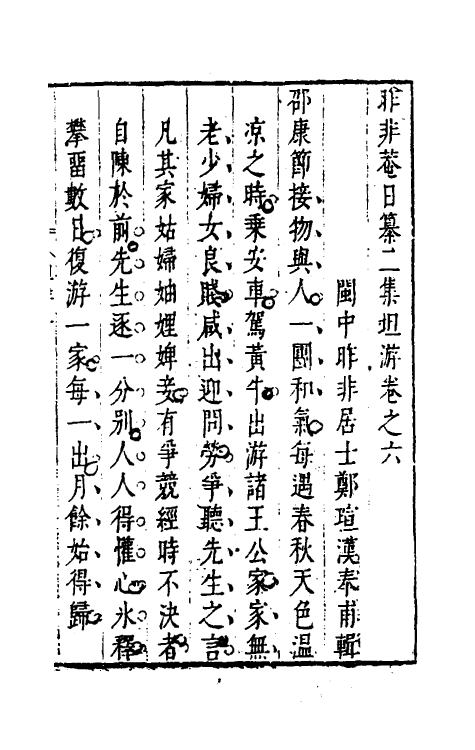 昨非菴日纂二集坦游卷之六
閩中昨非居士鄭瑄漢奉甫輯
邵康節接物與人一團和氣每遇春秋天色温
凉之時乘安車駕黃牛出游諸王公家家無
老少婦女良賤咸出迎問勞爭聽先生之言
凡其家姑婦妯娌婢妾有爭競經時不決者
自陳於前先生逐一分别人人得懽心氷釋
攀畱數日復游一家每一出月餘始得歸